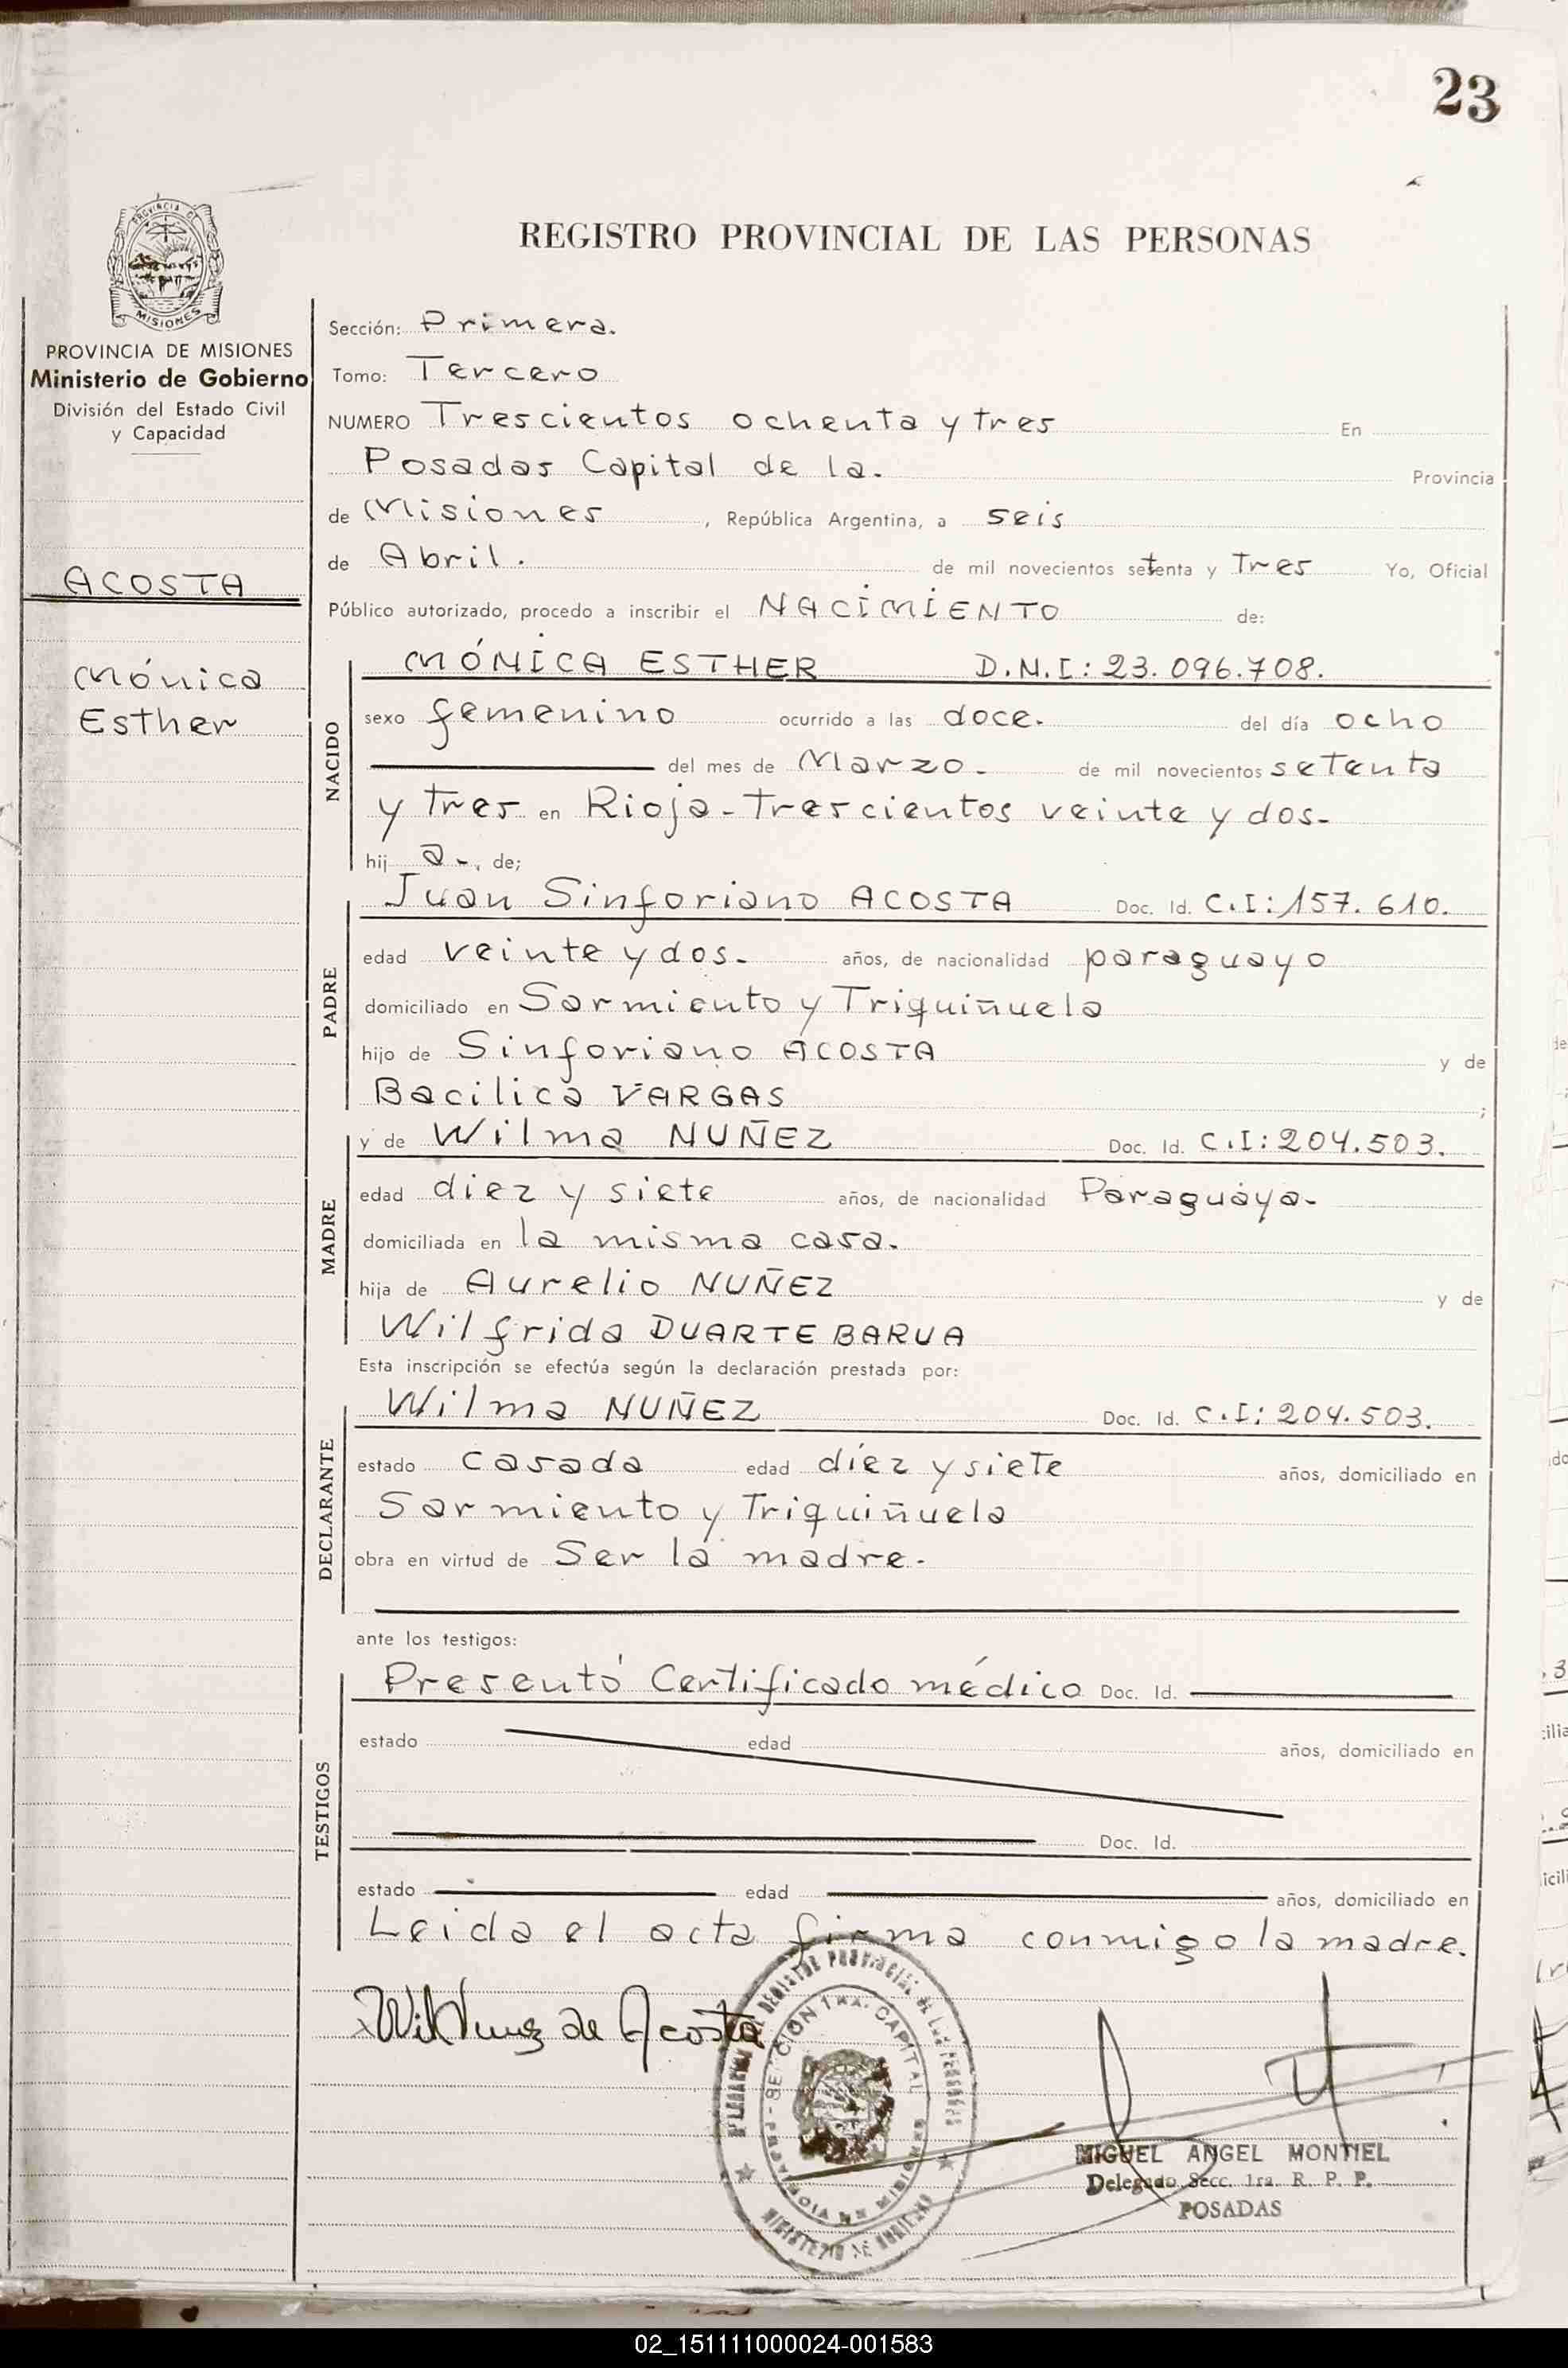 23
PROVINCIA DE
MISIONES
REGISTRO PROVINCIAL DE LAS PERSONAS
PROVINCIA DE MISIONES
Ministerio de Gobierno
División del Estado Civil
y Capacidad
ACOSTA
Mónica
Esther
Sección: Primera.
Tomo: Tercero
NUMERO Trescientos ochenta y tres En
Posadas Capital de la. Provincia
de Misiones, República Argentina, a seis
de Abril. de mil novecientos setenta y Tres Yo, Oficial
Público autorizado, procedo a inscribir el NACIMIENTO de:
NACIDO
MÓNICA ESTHER D.N.I: 23.096.708.
sexo femenino ocurrido a las doce. del día ocho
del mes de Marzo.- de mil novecientos setenta
y tres en Rioja-Trescientos veinte y dos-
hij a-, de;
PADRE
Juan Sinforiano ACOSTA Doc. Id. C.I: 157.610.
edad veinte y dos- años, de nacionalidad paraguayo
domiciliado en Sarmiento y Triquiñuela
hijo de Sinforiano ACOSTA y de
Bacilica VARGAS ;
MADRE
y de Wilma NUÑEZ Doc. Id. C.I: 204.503.
edad diez y siete años, de nacionalidad Paraguaya-
domiciliada en la misma casa.
hija de Aurelio NUÑEZ y de
Wilfrida DUARTE BARUA
Esta inscripción se efectúa según la declaración prestada por:
DECLARANTE
Wilma NUÑEZ Doc. Id. C.I: 204.503.
estado casada edad diez y siete años, domiciliado en
Sarmiento y Triquiñuela
obra en virtud de Ser la madre-
ante los testigos:
TESTIGOS
Presentó Certificado médico Doc. Id.
estado edad años, domiciliado en
Doc. Id.
estado edad años, domiciliado en
Leida el acta firma conmigo la madre.
de Acosta
REGISTRO PROVINCIAL DE LAS PERSONAS
SECCION 1RA. CAPITAL
PROVINCIA DE MISIONES
MINISTERIO DE GOBIERNO
MIGUEL ANGEL MONTIEL
Delegado Secc. 1ra. R. P. P.
POSADAS
02_151111000024-001583